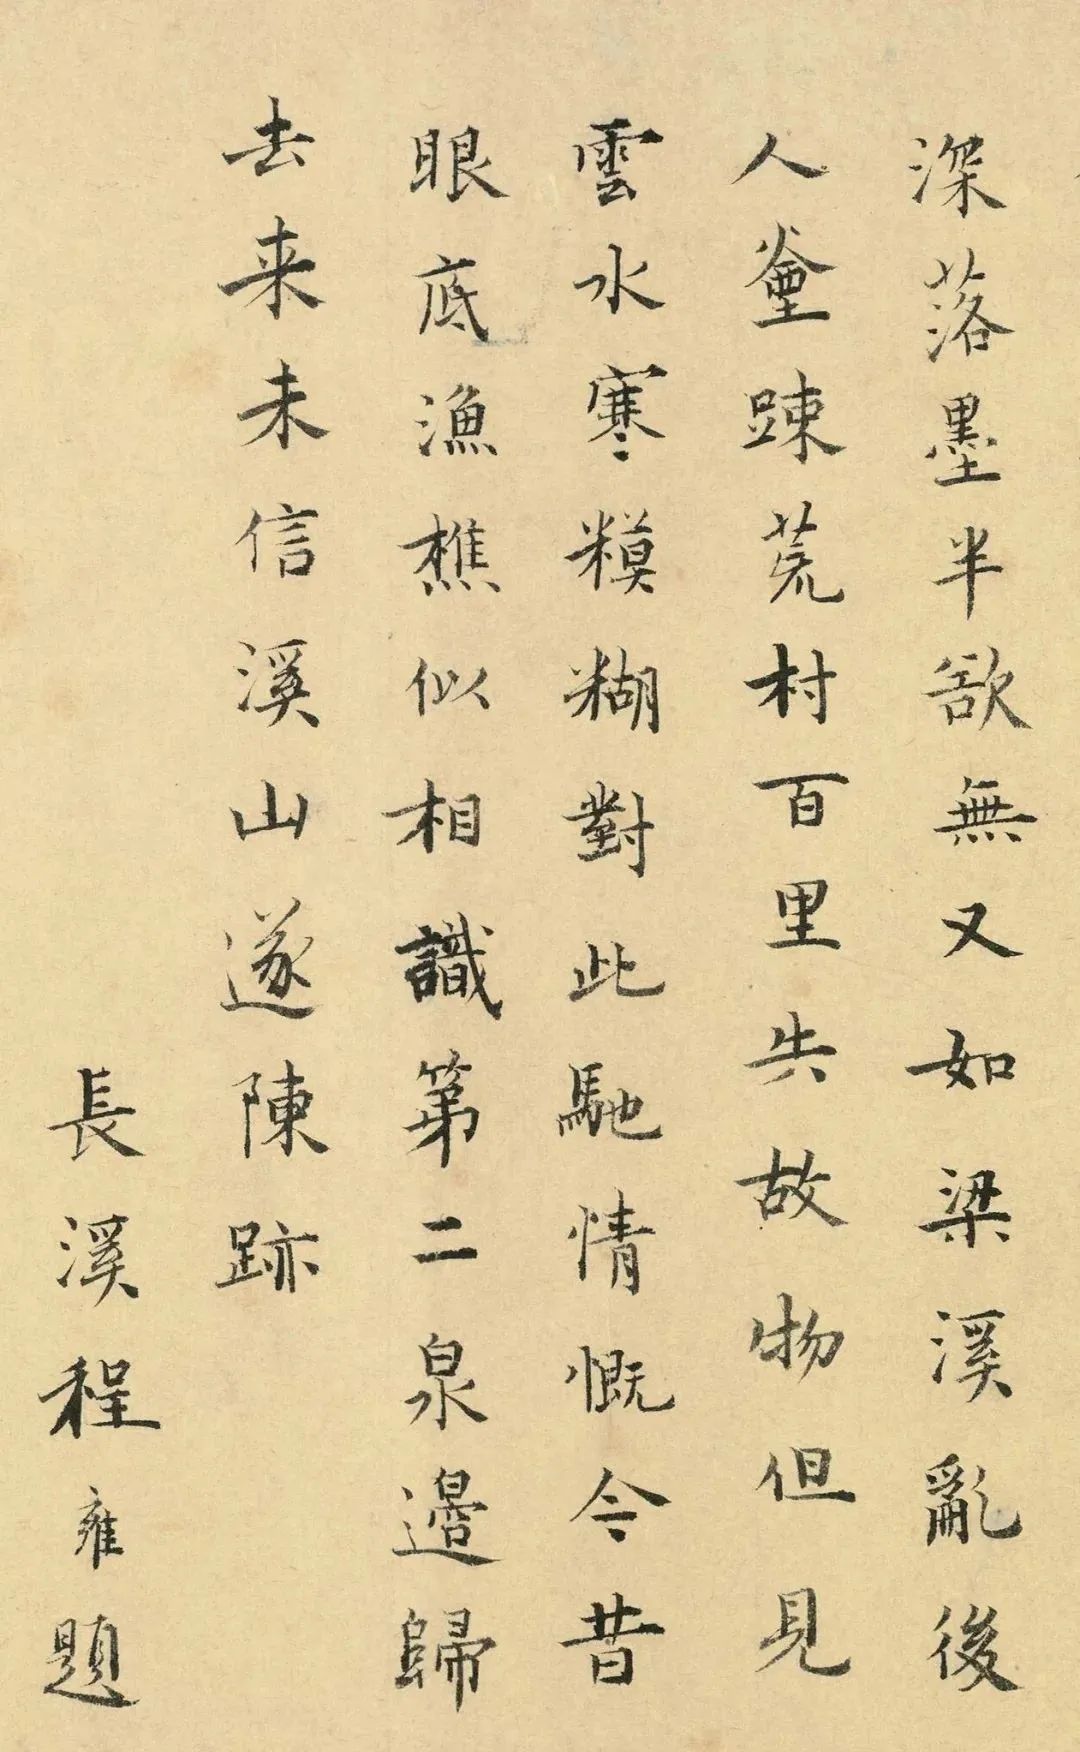 深落墨半欲無又如梁溪亂後
人煙踈荒村百里失故物但見
雲水寒糢糊對此馳情慨今昔
眼底漁樵似相識第二泉邊歸
去来未信溪山遂陳跡
長溪程雍題